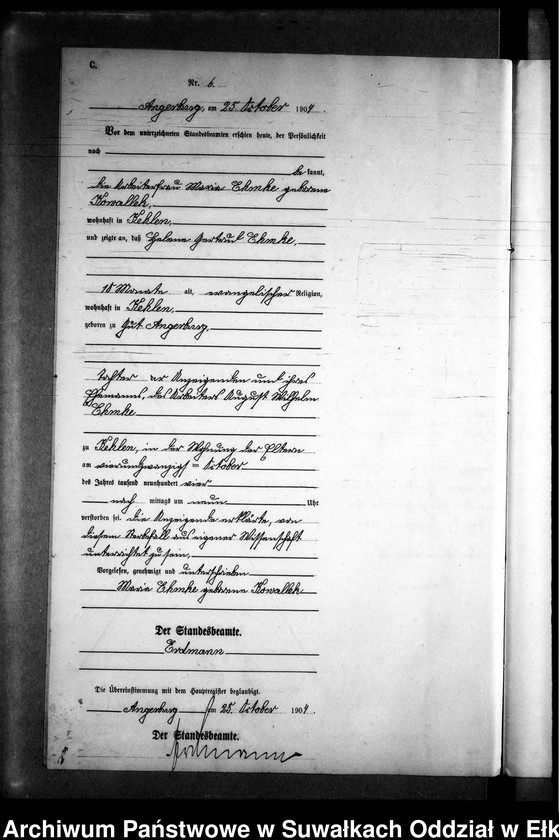 C.
Nr. 6.
Angerburg, am 25. October 1904.
Vor dem unterzeichneten Standesbeamten erschien heute, der Persönlichkeit
nach
be kannt,
die Arbeiterfrau Marie Ehmke geborene
Kowallek,
wohnhaft in Kehlen,
und zeigte an, daß Helene Gertrud Ehmke,
18 Monate alt, evangelischer Religion,
wohnhaft in Kehlen,
geboren zu Gut Angerburg,
Tochter der Anzeigenden und ihres
Ehemanns, des Arbeiters August Wilhelm
Ehmke
zu Kehlen, in der Wohnung der Eltern
am vierundzwanzigs ten October
des Jahres tausend neunhundert vier
nach mittags um neun Uhr
verstorben sei. Die Anzeigende erklärte, von
diesem Sterbefall aus eigener Wissenschaft
unterrichtet zu sein.
Vorgelesen, genehmigt und unterschrieben
Marie Ehmke geborene Kowallek
Der Standesbeamte.
Erdmann
Die Übereinstimmung mit dem Hauptregister beglaubigt.
Angerburg am 25. October 1904.
Der Standesbeamte.
Erdmann
Archiwum Państwowe w Suwałkach Oddział w Ełk